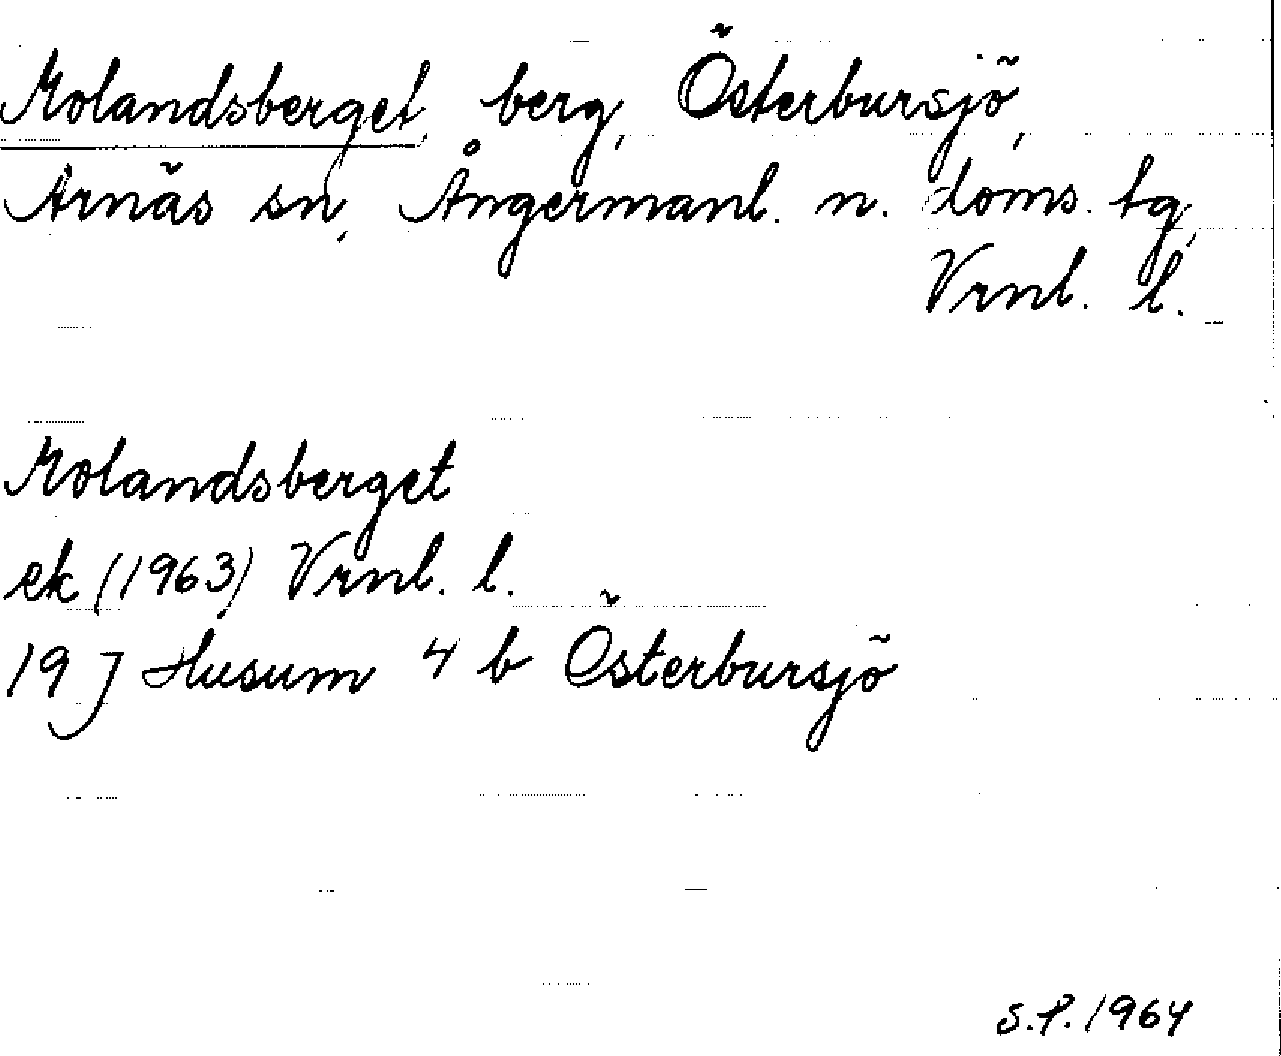 Molandsberget, berg, Österbursjö,
Arnäs sn, Ångermanl. n. doms. tg,
Vrnl. l.
Molandsberget
ek (1963) Vrnl. l.
19 J Husum 4 b Österbursjö
S.P. 1964